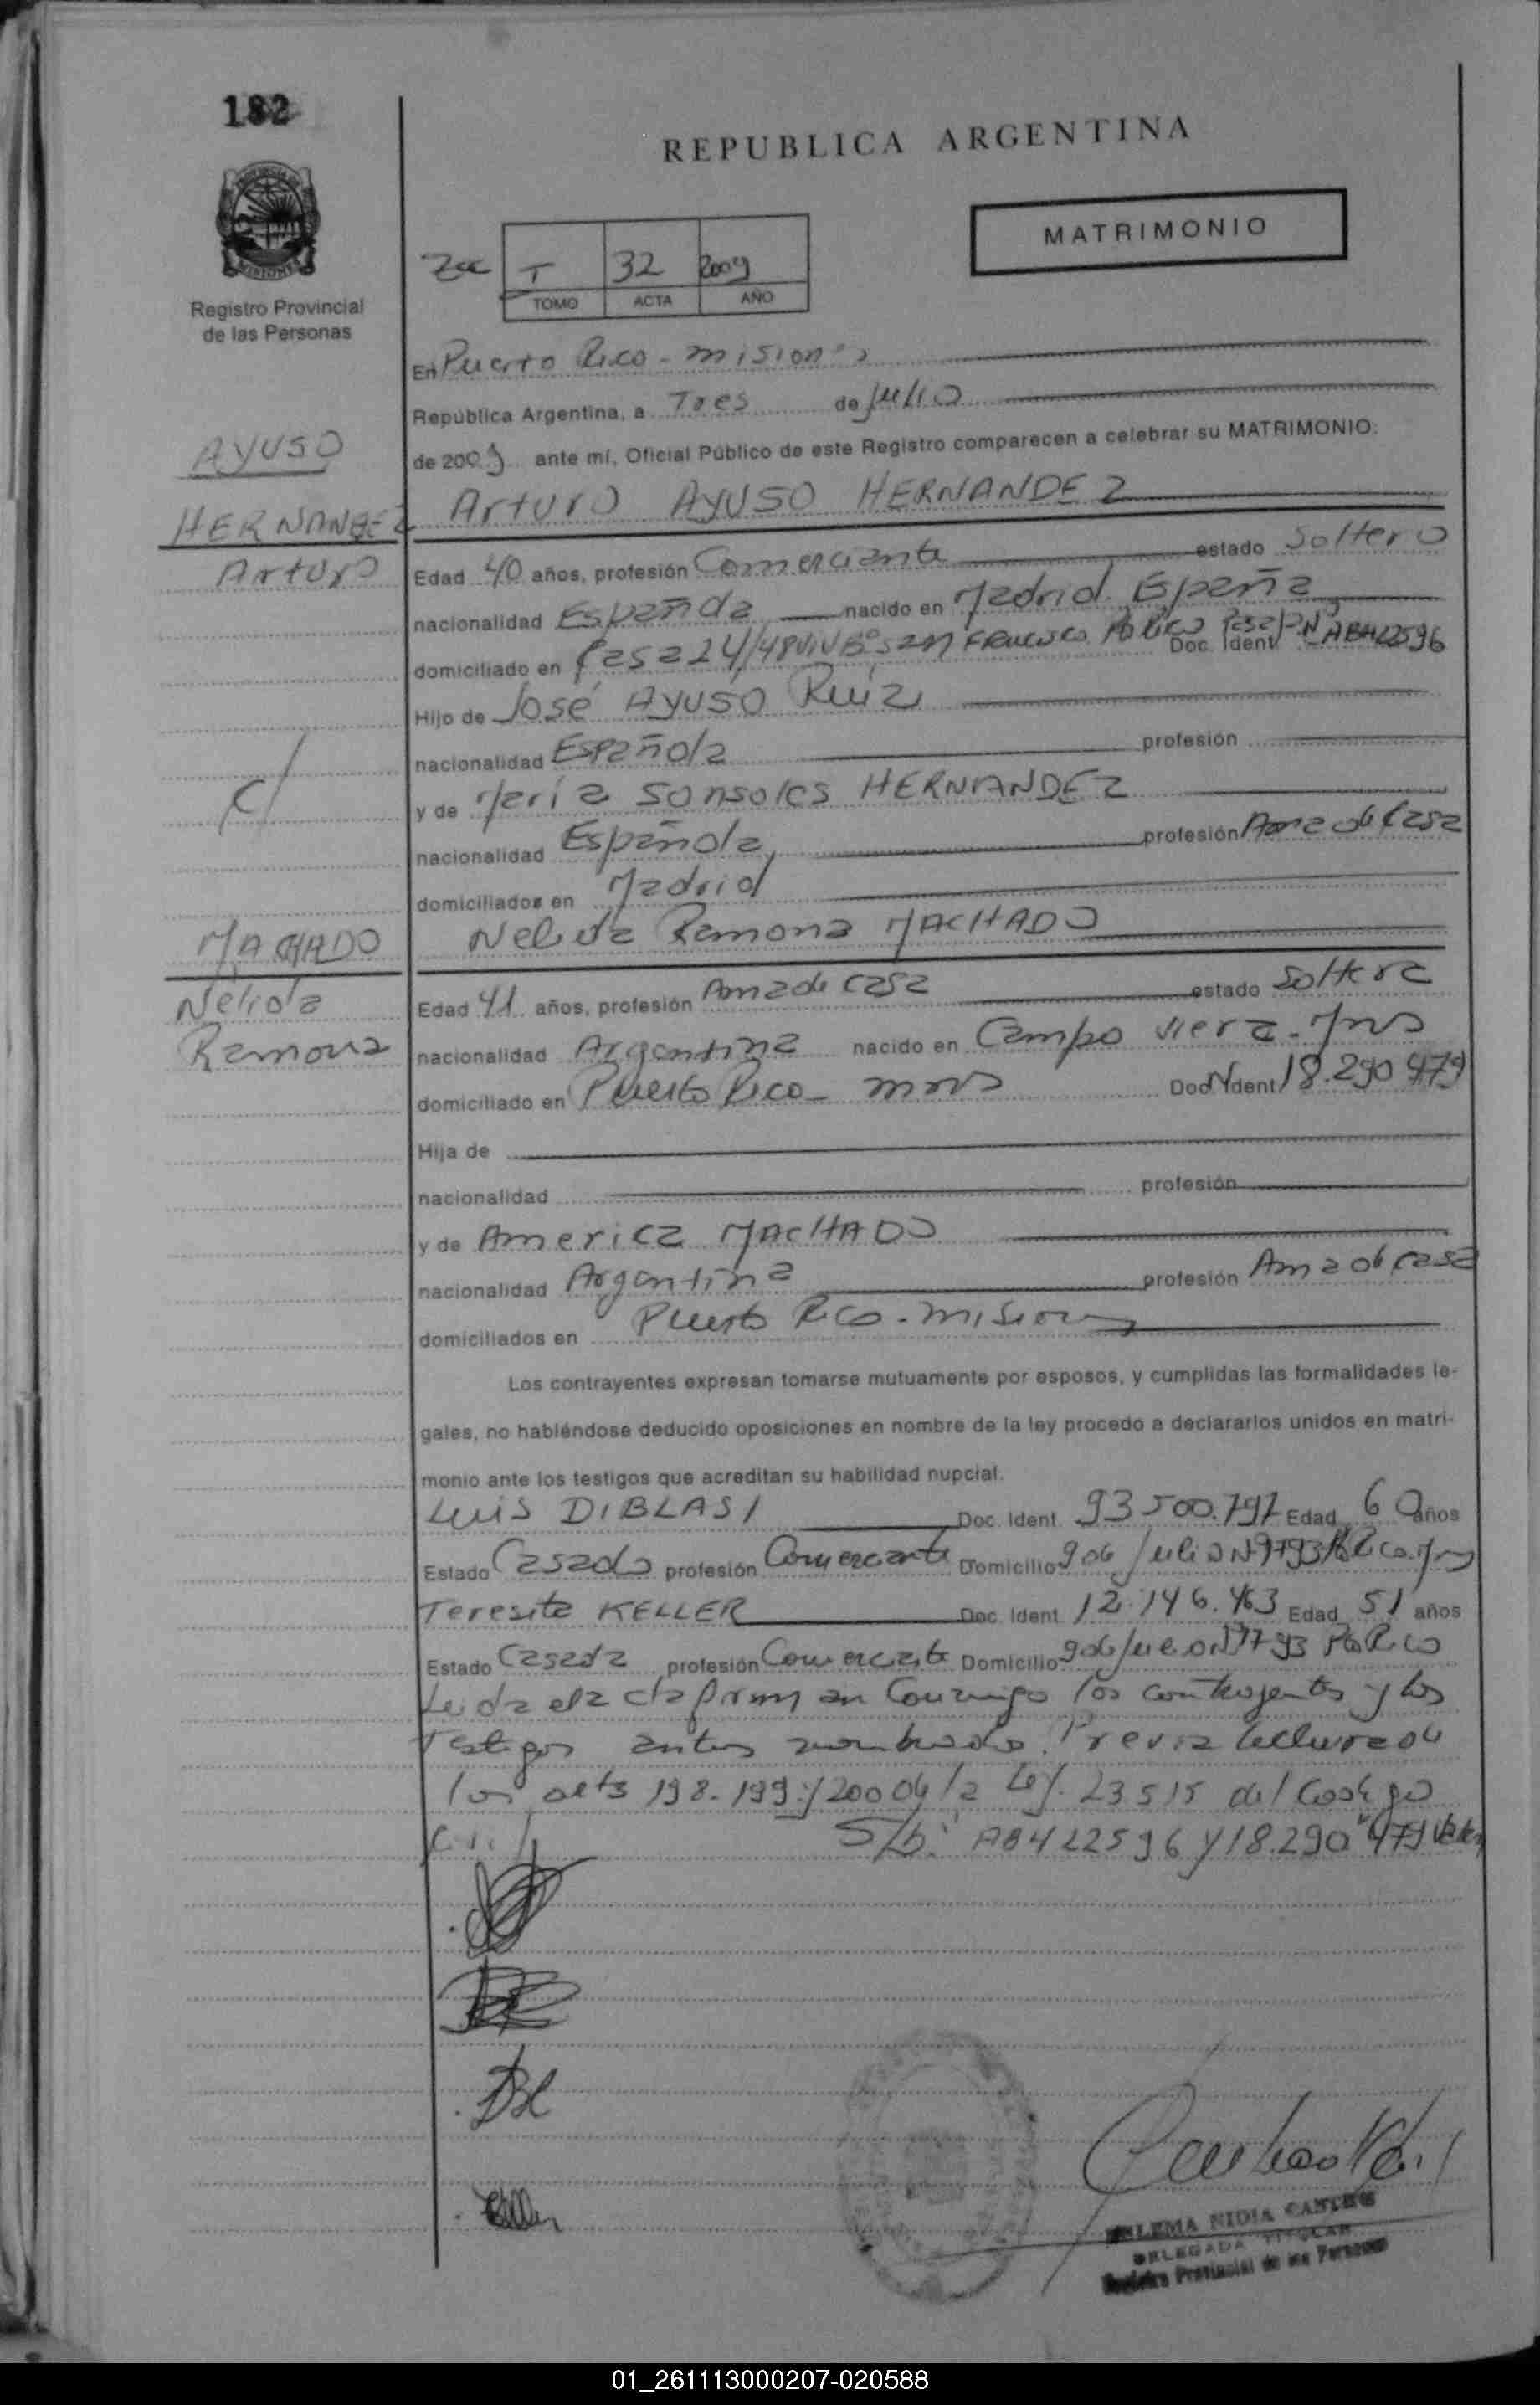 182
REPUBLICA ARGENTINA
MATRIMONIO
T 32 2009
TOMO ACTA AÑO
Registro Provincial
de las Personas
En Puerto Rico - Misiones
República Argentina, a Tres de Julio
de 2009 ante mí, Oficial Público de este Registro comparecen a celebrar su MATRIMONIO:
AYUSO
HERNANDEZ
Arturo
Arturo AYUSO HERNANDEZ
Edad 40 años, profesión Comerciante estado Soltero
nacionalidad Española nacido en Madrid. España
domiciliado en Casa 24/48 Viv Bº San Francisco Doc. Ident. ABA22596
Hijo de José AYUSO Ruiz
nacionalidad Española profesión
y de María Sonsoles HERNANDEZ
nacionalidad Española profesión Ama de Casa
domiciliados en Madrid
MACHADO
Nélida
Ramona
Nelida Ramona MACHADO
Edad 41 años, profesión Ama de casa estado Soltera
nacionalidad Argentina nacido en Campo Viera - Mns
domiciliado en Puerto Rico - mns Doc. Ident. 18.290 479
Hija de
nacionalidad profesión
y de America MACHADO
nacionalidad Argentina profesión Ama de casa
domiciliados en Puerto Rico - Misiones
Los contrayentes expresan tomarse mutuamente por esposos, y cumplidas las formalidades le-
gales, no habiéndose deducido oposiciones en nombre de la ley procedo a declararlos unidos en matri-
monio ante los testigos que acreditan su habilidad nupcial.
Luis DIBLASI Doc. Ident. 93500.797 Edad 60 años
Estado Casado profesión Comerciante Domicilio 9 de Julio Nº 793
Teresita KELLER Doc. Ident. 12.146.463 Edad 51 años
Estado Casada profesión Comerciante Domicilio 9 de Julio Nº 793 Pto Rico
Leida el acta firman conmigo los contrayentes y los
Testigos antes nombrados. Previa lectura de
los arts 198. 199 y 200 de la Ley. 23515 del Codigo
S/b: AB422596 y 18.290"479 Vale
DELEGADA TITULAR
Registro Provincial de las Personas
01_261113000207-020588